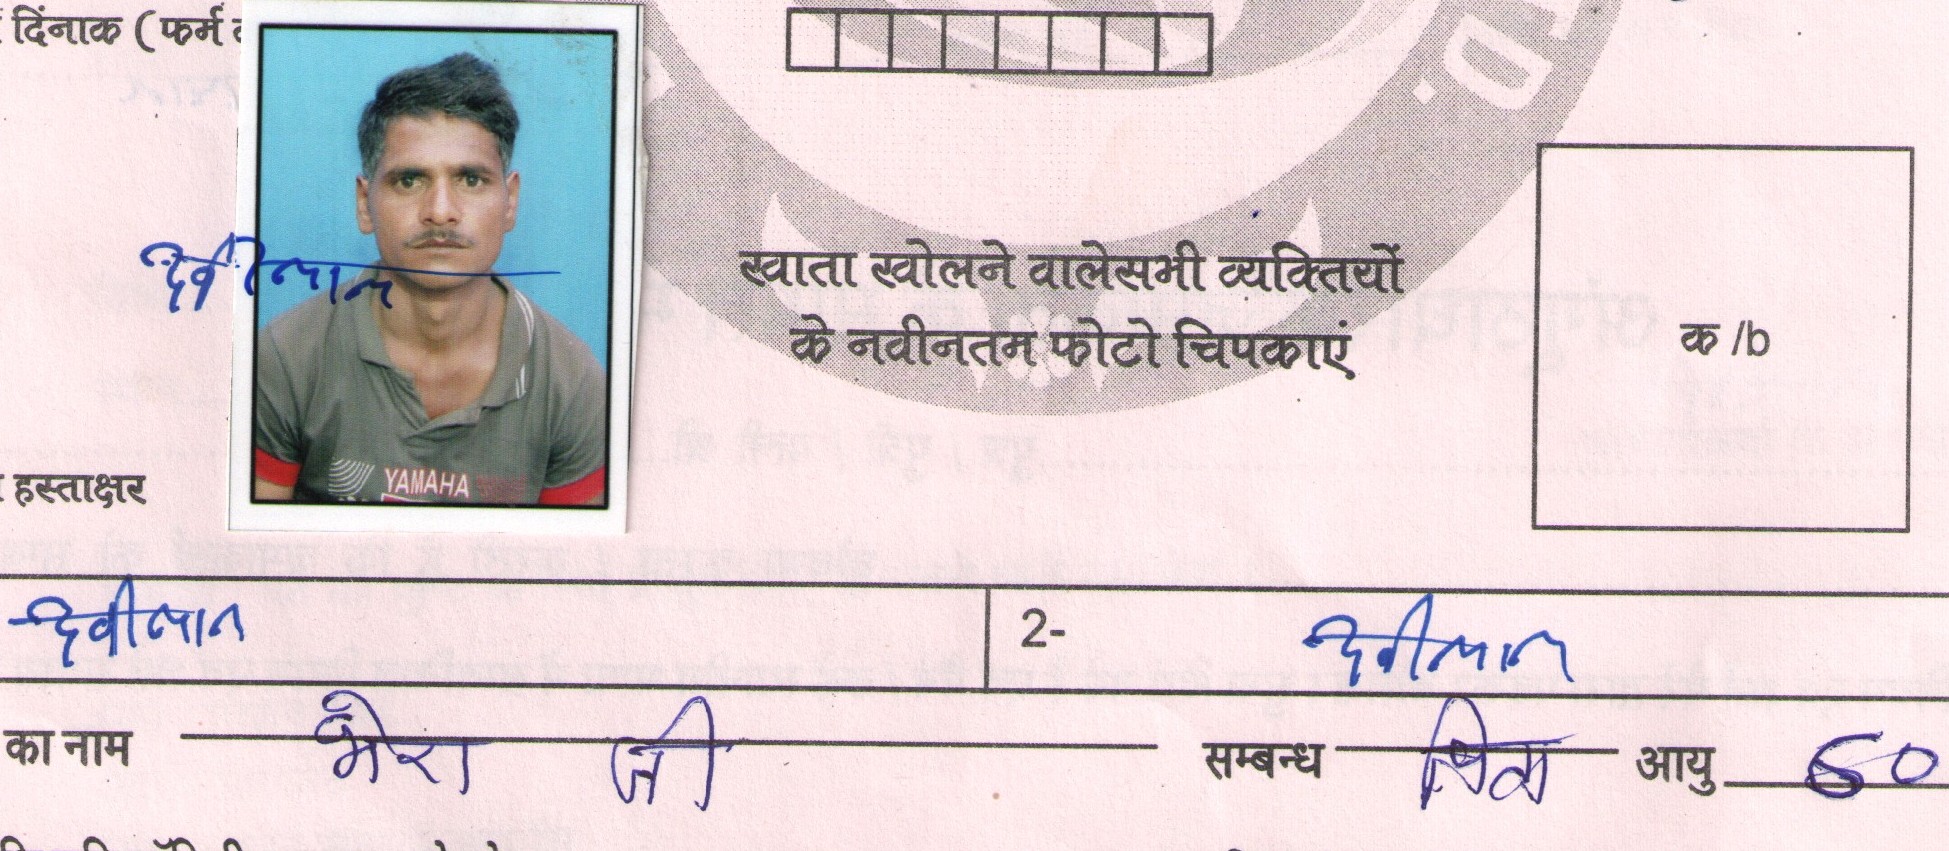 दिंनाक ( फर्म
D.
देवीलाल
YAMAHA
खाता खोलने वालेसभी व्यक्तियों
के नवीनतम फोटो चिपकाएं
क /b
हस्ताक्षर
देवीलाल 2- देवीलाल
का नाम भेरा जी सम्बन्ध पिता आयु 60